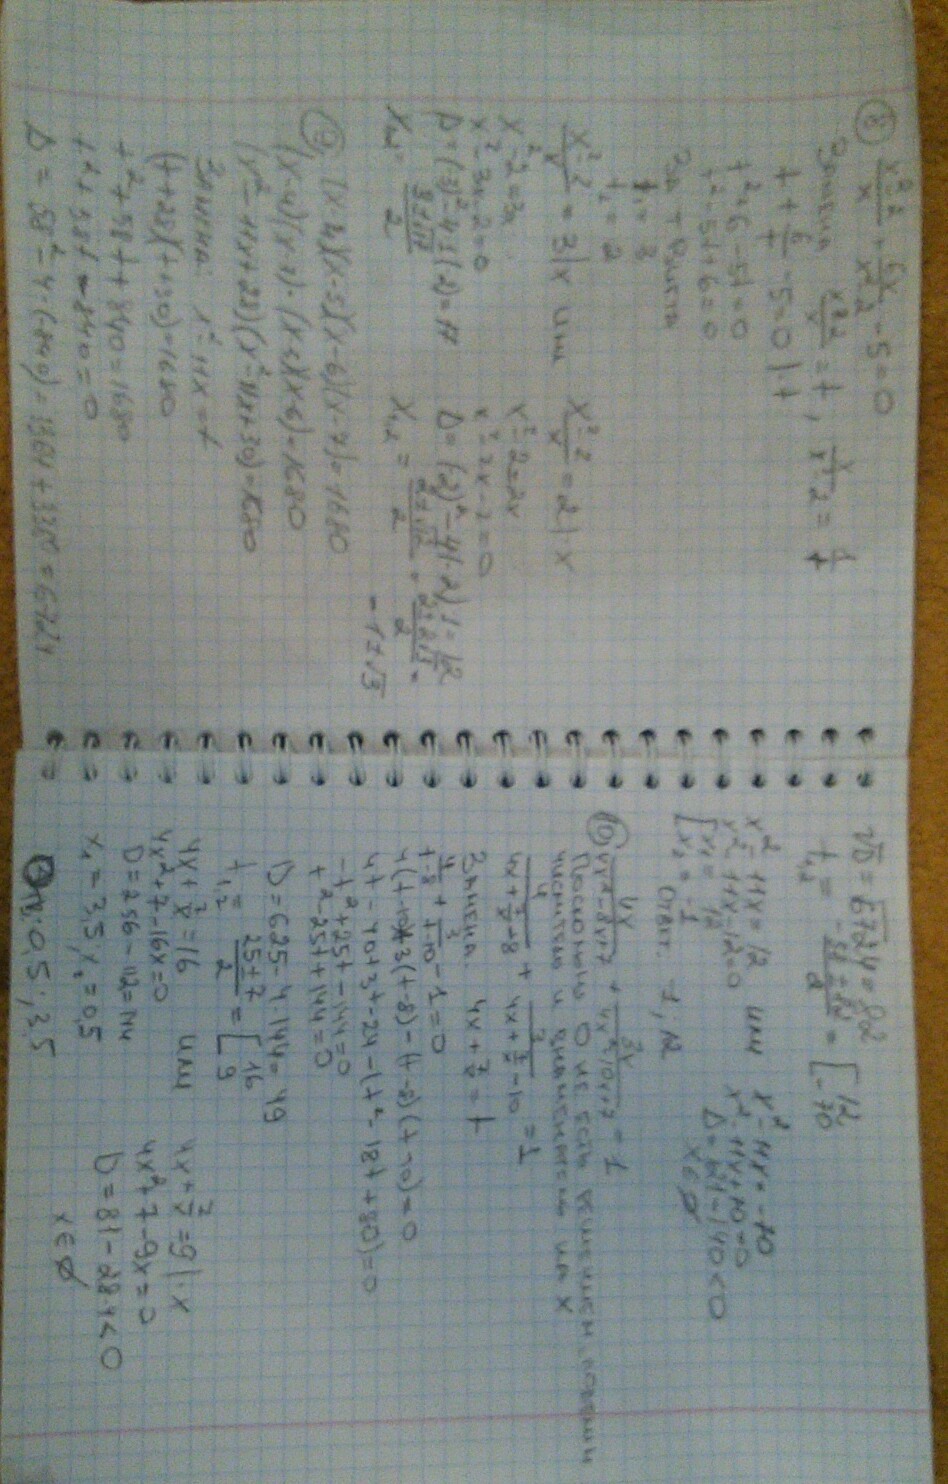 ⑧ x²-2/x + 6x/x²-2 - 5 = 0
Замена x²-2/x = t, x/x²-2 = 1/t
t + 6/t - 5 = 0 | t
t² + 6 - 5t = 0
t² - 5t + 6 = 0
По т Виета
t₁ = 3
t₂ = 2
x²-2/x = 3 | x или x²-2/x = 2 | · x
x² - 2 = 3x
x² - 3x - 2 = 0
D = (-3)² - 4 · 1 (-2) = 17
x₁,₂ = 3±√17/2
x² - 2 = 2x
x² - 2x - 2 = 0
D = (-2)² - 4 (-2) · 1 = 12
x₁,₂ = 2±√12/2 = 2±2√3/2 =
- 1±√3
⑨ (x-4)(x-5)(x-6)(x-7) = 1680
(x-4)(x-7) · (x-5)(x-6) = 1680
(x² - 11x + 28)(x² - 11x + 30) = 1680
Замена: x² - 11x = t
(t+28)(t+30) = 1680
t² + 58t + 840 = 1680
t² + 58t - 840 = 0
D = 58² - 4 · (-840) = 3364 + 3360 = 6724
√D = √6724 = 82
t₁,₂ = -58±82/2 = [12 -70
x² - 11x = 12 или x² - 11x = -70
x² - 11x - 12 = 0
[x₁ = 12
x₂ = -1
x² - 11x + 70 = 0
D = 121 - 140 < 0
x ∈ ∅
Ответ. -1; 12
⑩ 4x/4x²-8x+7 + 3x/4x²-10x+7 = 1
Поскольку 0 не есть решением, поделим
числитель и знаменатель на x
4/4x+7/x-8 + 3/4x+7/x-10 = 1
Замена. 4x + 7/x = t
4/t-8 + 3/t-10 - 1 = 0
4(t-10) + 3(t-8) - (t-8)(t-10) = 0
4t - 40 + 3t - 24 - (t² - 18t + 80) = 0
-t² + 25t - 144 = 0
t² - 25t + 144 = 0
D = 625 - 4 · 144 = 49
t₁,₂ = 25±7/2 = [16 9
4x + 7/x = 16 или 4x + 7/x = 9 | · x
4x² + 7 - 16x = 0
D = 256 - 112 = 144
x₁ = 3,5 x₂ = 0,5
4x² + 7 - 9x = 0
D = 81 - 28·4 < 0
x ∈ ∅
Отв: 0,5; 3,5